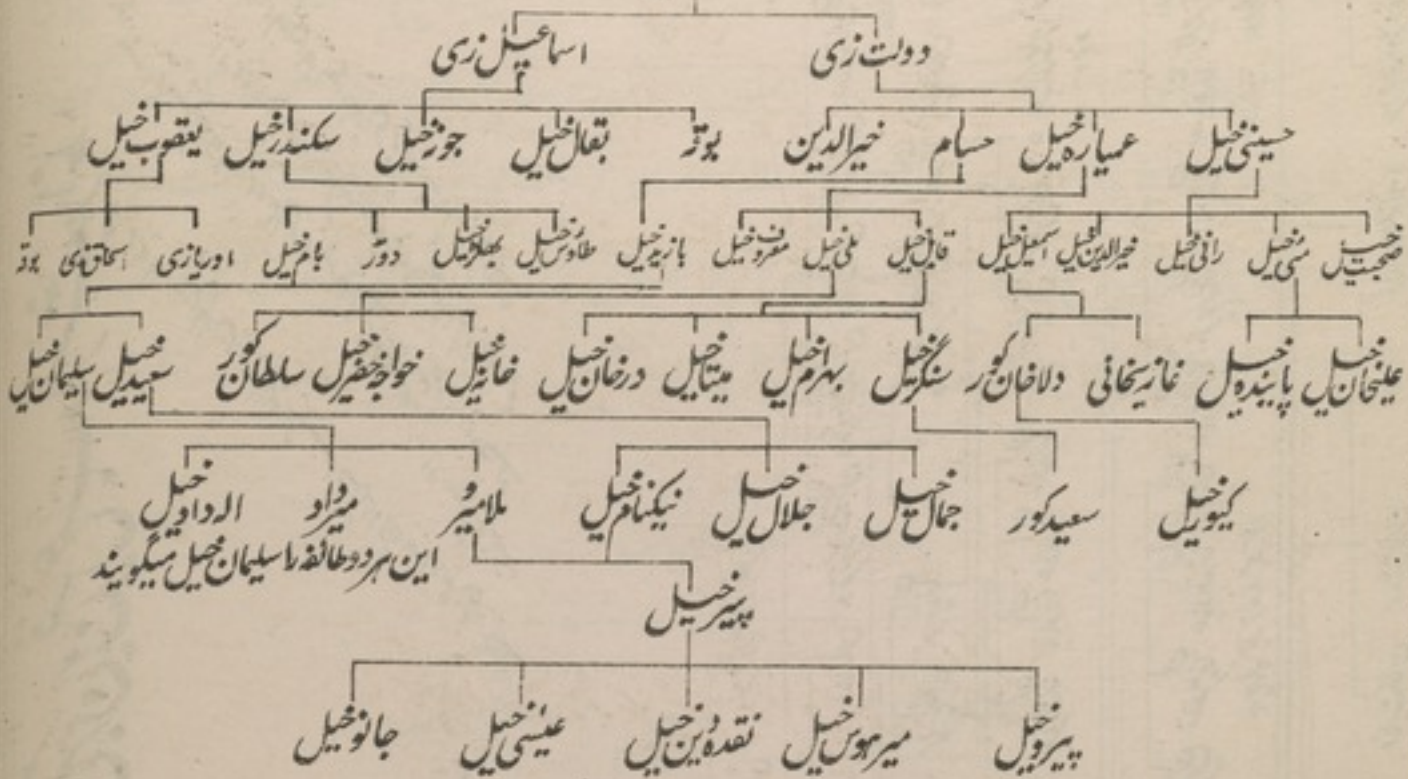 دولت زی اسماعیل زی
حسینی خیل عمیاره خیل حسام خیرالدین بوڑ بقال خیل جوز خیل سکندر خیل یعقوب خیل
صحبت خیل سنی خیل رانی خیل خیرالدین خیل اسمعیل خیل قابل خیل ملی خیل معروف خیل بازید خیل طاوس خیل بهلول خیل دوڑ بام خیل اوریازی اسحاق زی بوڑ
علیخان خیل پاینده خیل غازیخانی دلاخان کور سنگر خیل بهرام خیل میتا خیل درخان خیل خانه خیل خواجه خضر خیل سلطان کور سعید خیل سلیمان خیل
کیور خیل سعید کور جمال خیل جلال خیل نیکنام خیل ملامیرو میرداد اله داد خیل
این هر دو طائفه را سلیمان خیل میگویند
پیر خیل
پیرو خیل میرهوس خیل نقده دین خیل عیسی خیل جانو خیل